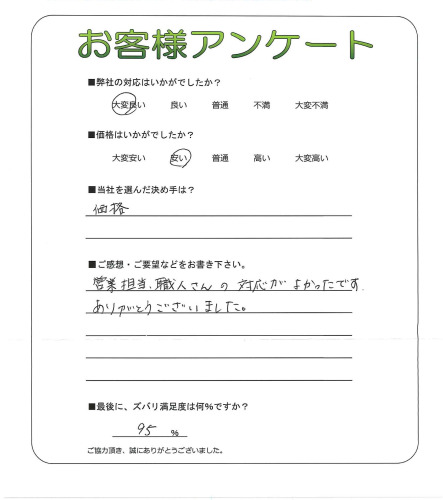 お客様アンケート
■弊社の対応はいかがでしたか？
大変良い 良い 普通 不満 大変不満
■価格はいかがでしたか？
大変安い 安い 普通 高い 大変高い
■当社を選んだ決め手は？
価格
■ご感想・ご要望などをお書き下さい。
営業担当、職人さんの対応がよかったです。
ありがとうございました。
■最後に、ズバリ満足度は何%ですか？
95 %
ご協力頂き、誠にありがとうございました。